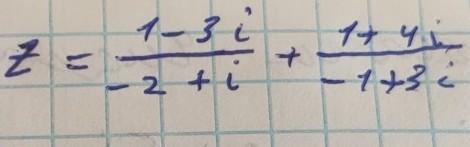 z = \frac{1-3i}{-2+i} + \frac{1+4i}{-1+3i}